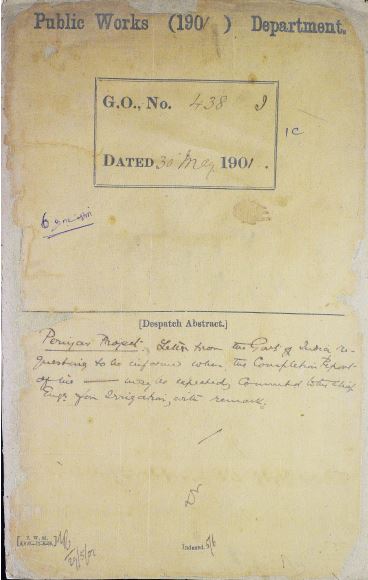 Public Works (1901) Department.
G.O., No. 438 I
1C
DATED 30 May 1901.
6
[Despatch Abstract.]
Periyar Project. Letter from the Govt of India re-
questing to be informed when the Completion Report
of the —— may be expected, Commund to the Chief
Engr for Irrigation, with remarks.
Indexed 5/6